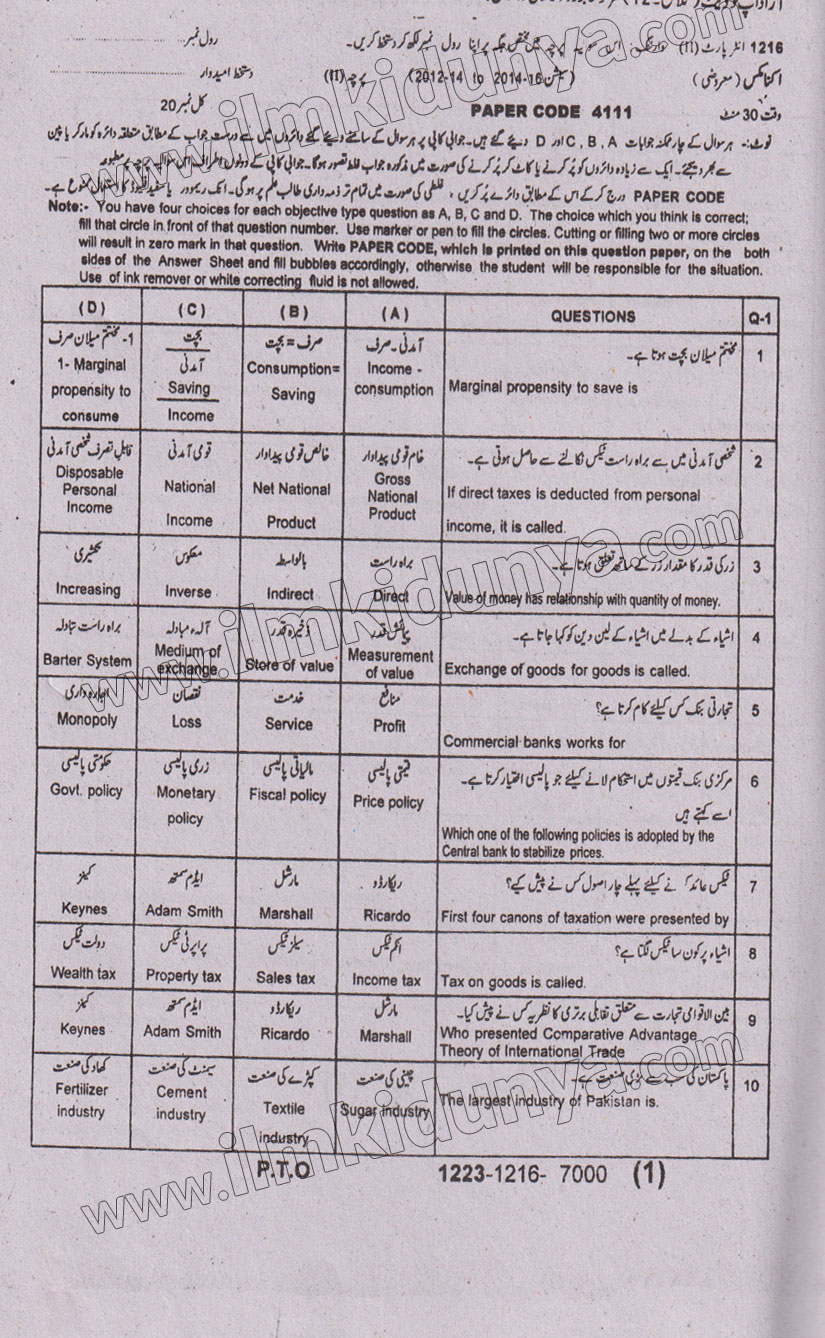 1216 انٹر پارٹ (II)
رول نمبر
اکنامکس (معروضی)
(سیشن 2012-14 to 2014-16)
پرچہ (II)
دستخط امیدوار
وقت 30 منٹ
PAPER CODE 4111
کل نمبر 20
نوٹ:- ہر سوال کے چار ممکنہ جوابات A ,B ,C اور D دیئے گئے ہیں۔ جوابی کاپی پر ہر سوال کے سامنے دیئے گئے دائروں میں سے درست جواب کے مطابق متعلقہ دائرہ کو مارکر یا پین
سے بھر دیجئے۔ ایک سے زیادہ دائروں کو پُر کرنے یا کاٹ کر پُر کرنے کی صورت میں مذکورہ جواب غلط تصور ہوگا۔ جوابی کاپی کے دونوں اطراف اس سوالیہ پرچہ پر مطبوعہ
PAPER CODE درج کر کے اس کے مطابق دائرے پُر کریں ، غلطی کی صورت میں تمام تر ذمہ داری طالب علم پر ہوگی۔ انک ریموور یا سفید فلیوڈ کا استعمال ممنوع ہے۔
Note:- You have four choices for each objective type question as A, B, C and D. The choice which you think is correct;
fill that circle in front of that question number. Use marker or pen to fill the circles. Cutting or filling two or more circles
will result in zero mark in that question. Write PAPER CODE, which is printed on this question paper, on the both
sides of the Answer Sheet and fill bubbles accordingly, otherwise the student will be responsible for the situation.
Use of ink remover or white correcting fluid is not allowed.
(D) (C) (B) (A) QUESTIONS Q-1
1- مختتم میلان صرف
بچت
آمدنی
صرف = بچت
آمدنی - صرف
مختتم میلان بچت ہوتا ہے۔
1
1- Marginal
propensity to
consume
Saving
Income
Consumption=
Saving
Income -
consumption
Marginal propensity to save is
قابل تصرف شخصی آمدنی
قومی آمدنی
خالص قومی پیداوار
خام قومی پیداوار
شخصی آمدنی میں سے براہ راست ٹیکس نکالنے سے حاصل ہوتی ہے۔
2
Disposable
Personal
Income
National
Income
Net National
Product
Gross
National
Product
If direct taxes is deducted from personal
income, it is called.
تکثیری
معکوس
بالواسطہ
براہ راست
زر کی قدر کا مقدار زر کے ساتھ تعلق ہوتا ہے۔
3
Increasing
Inverse
Indirect
Direct
Value of money has relationship with quantity of money.
براہ راست تبادلہ
آلہء مبادلہ
ذخیرہ قدر
پیمائش قدر
اشیاء کے بدلے میں اشیاء کے لین دین کو کہا جاتا ہے۔
4
Barter System
Medium of
exchange
Store of value
Measurement
of value
Exchange of goods for goods is called.
اجارہ داری
نقصان
خدمت
منافع
تجارتی بنک کس کیلئے کام کرتا ہے؟
5
Monopoly
Loss
Service
Profit
Commercial banks works for
حکومتی پالیسی
زری پالیسی
مالیاتی پالیسی
قیمتی پالیسی
مرکزی بنک قیمتوں میں استحکام لانے کیلئے جو پالیسی اختیار کرتا ہے۔
اسے کہتے ہیں
6
Govt. policy
Monetary
policy
Fiscal policy
Price policy
Which one of the following policies is adopted by the
Central bank to stabilize prices.
کینز
ایڈم سمتھ
مارشل
ریکارڈو
ٹیکس عائد کرنے کیلئے پہلے چار اصول کس نے پیش کیے؟
7
Keynes
Adam Smith
Marshall
Ricardo
First four canons of taxation were presented by
دولت ٹیکس
پراپرٹی ٹیکس
سیلز ٹیکس
انکم ٹیکس
اشیاء پر کون سا ٹیکس لگتا ہے؟
8
Wealth tax
Property tax
Sales tax
Income tax
Tax on goods is called.
کینز
ایڈم سمتھ
ریکارڈو
مارشل
بین الاقوامی تجارت سے متعلق تقابلی برتری کا نظریہ کس نے پیش کیا۔
9
Keynes
Adam Smith
Ricardo
Marshall
Who presented Comparative Advantage
Theory of International Trade
کھاد کی صنعت
سیمنٹ کی صنعت
کپڑے کی صنعت
چینی کی صنعت
پاکستان کی سب سے بڑی صنعت ہے۔
10
Fertilizer
industry
Cement
industry
Textile
industry
Sugar industry
The largest industry of Pakistan is.
P.T.O
1223-1216- 7000 (1)
www.ilmkidunya.com
www.ilmkidunya.com
www.ilmkidunya.com